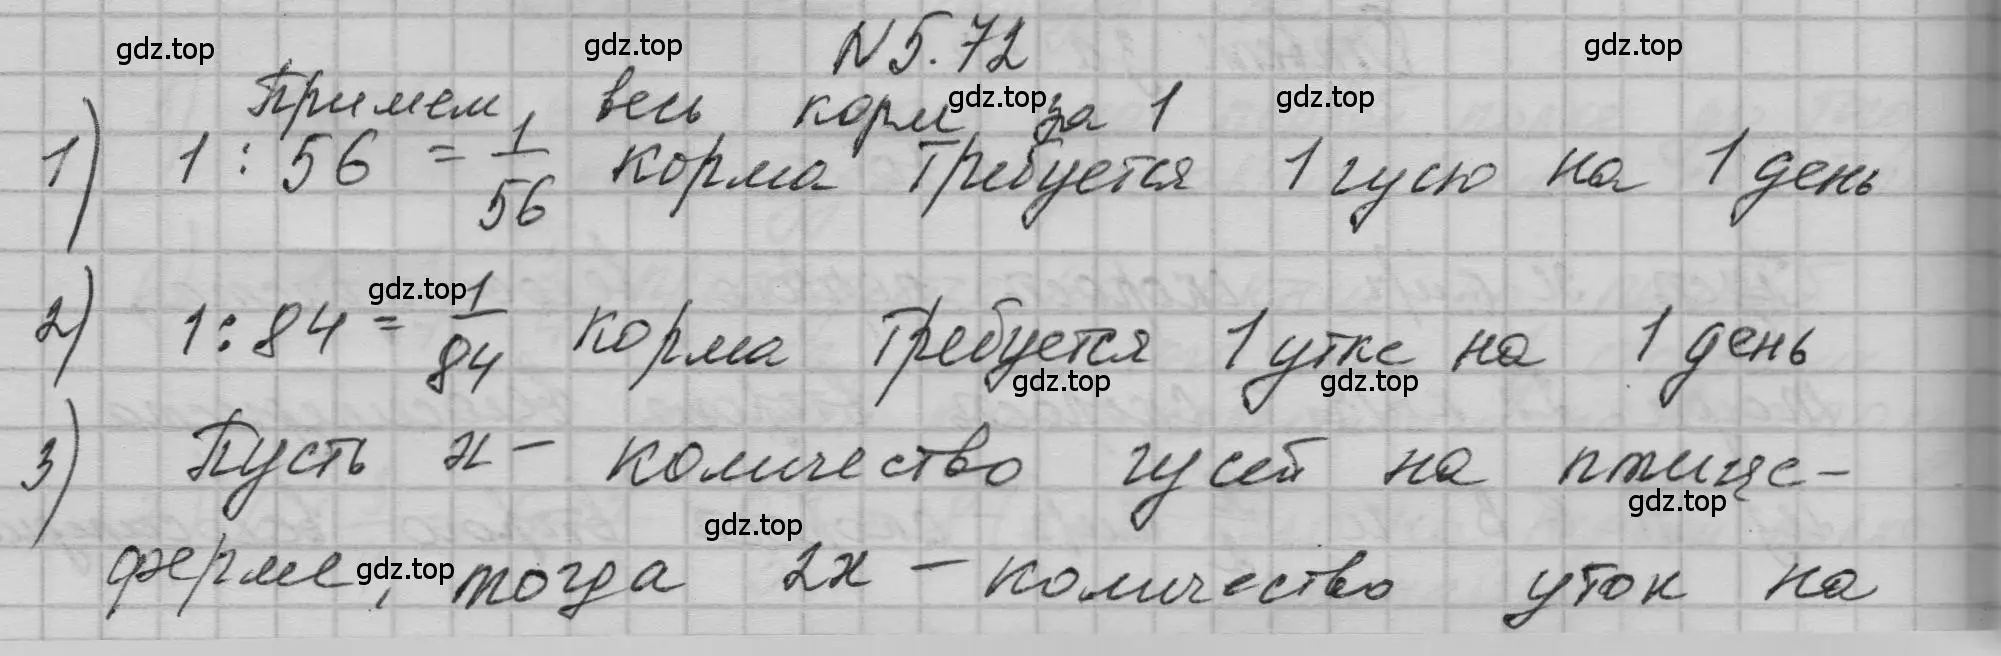 gdz.top gdz.top N 5.72 gdz.top
Примем весь корм за 1
gdz.top gdz.top
1) 1 : 56 = 1/56 корма требуется 1 гусю на 1 день
gdz.top
2) 1 : 84 = 1/84 корма требуется 1 утке на 1 день
gdz.top gdz.top
3) Пусть х - количество гусей на птице-
gdz.top gdz.top
ферме, тогда 2х - количество уток на
gdz.top